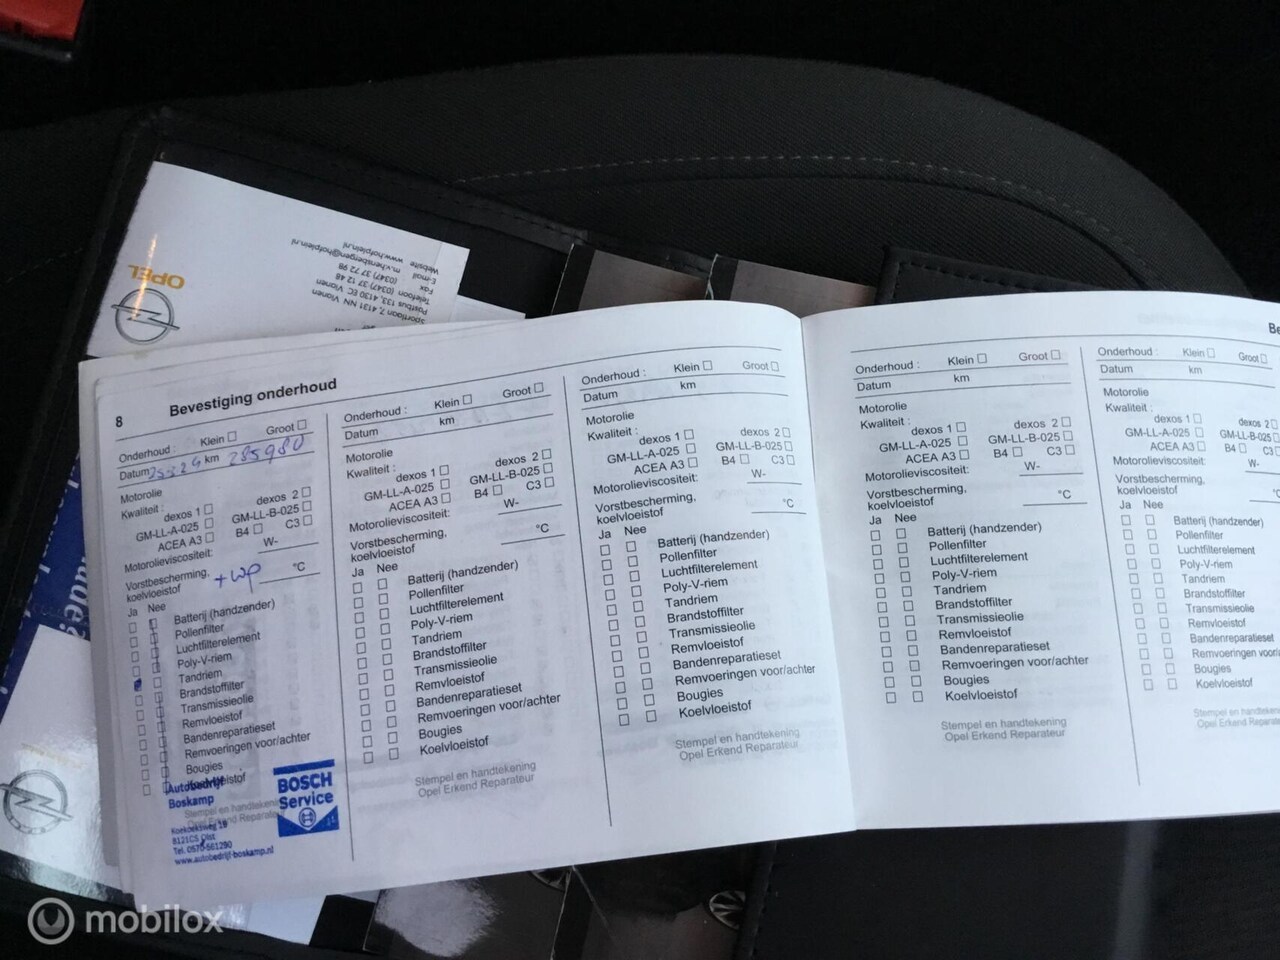 OPEL
Sportlaan 7, 4131 NN Vianen
Postbus 133, 4130 EC Vianen
Telefoon (0347) 37 12 48
Fax (0347) 37 72 98
E-mail m.v.hensbergen@hofplein.nl
Website www.hofplein.nl
8 Bevestiging onderhoud
Onderhoud : Klein Groot
Datum km 285980
Motorolie
Kwaliteit : dexos 1 dexos 2
GM-LL-A-025 GM-LL-B-025
ACEA A3 B4 C3
Motorolieviscositeit: W-
Vorstbescherming, koelvloeistof +wp °C
Ja Nee
Batterij (handzender)
Pollenfilter
Luchtfilterelement
Poly-V-riem
Tandriem
Brandstoffilter
Transmissieolie
Remvloeistof
Bandenreparatieset
Remvoeringen voor/achter
Bougies
Koelvloeistof
Stempel en handtekening
Opel Erkend Reparateur
Autobedrijf
Boskamp
Koekoeksweg 19
8121CS Olst
Tel. 0570-561290
www.autobedrijf-boskamp.nl
BOSCH
Service
Onderhoud : Klein Groot
Datum km
Motorolie
Kwaliteit : dexos 1 dexos 2
GM-LL-A-025 GM-LL-B-025
ACEA A3 B4 C3
Motorolieviscositeit: W-
Vorstbescherming,
koelvloeistof °C
Ja Nee
Batterij (handzender)
Pollenfilter
Luchtfilterelement
Poly-V-riem
Tandriem
Brandstoffilter
Transmissieolie
Remvloeistof
Bandenreparatieset
Remvoeringen voor/achter
Bougies
Koelvloeistof
Stempel en handtekening
Opel Erkend Reparateur
Onderhoud : Klein Groot
Datum km
Motorolie
Kwaliteit : dexos 1 dexos 2
GM-LL-A-025 GM-LL-B-025
ACEA A3 B4 C3
Motorolieviscositeit: W-
Vorstbescherming,
koelvloeistof °C
Ja Nee
Batterij (handzender)
Pollenfilter
Luchtfilterelement
Poly-V-riem
Tandriem
Brandstoffilter
Transmissieolie
Remvloeistof
Bandenreparatieset
Remvoeringen voor/achter
Bougies
Koelvloeistof
Stempel en handtekening
Opel Erkend Reparateur
Onderhoud : Klein Groot
Datum km
Motorolie
Kwaliteit : dexos 1 dexos 2
GM-LL-A-025 GM-LL-B-025
ACEA A3 B4 C3
Motorolieviscositeit: W-
Vorstbescherming,
koelvloeistof °C
Ja Nee
Batterij (handzender)
Pollenfilter
Luchtfilterelement
Poly-V-riem
Tandriem
Brandstoffilter
Transmissieolie
Remvloeistof
Bandenreparatieset
Remvoeringen voor/achter
Bougies
Koelvloeistof
Stempel en handtekening
Opel Erkend Reparateur
Onderhoud : Klein Groot
Datum km
Motorolie
Kwaliteit : dexos 1 dexos 2
GM-LL-A-025 GM-LL-B-025
ACEA A3 B4 C3
Motorolieviscositeit: W-
Vorstbescherming,
koelvloeistof
Ja Nee
Batterij (handzender)
Pollenfilter
Luchtfilterelement
Poly-V-riem
Tandriem
Brandstoffilter
Transmissieolie
Remvloeistof
Bandenreparatieset
Remvoeringen
Bougies
Koelvloeistof
Stempel en
Opel Erkend
mobilox